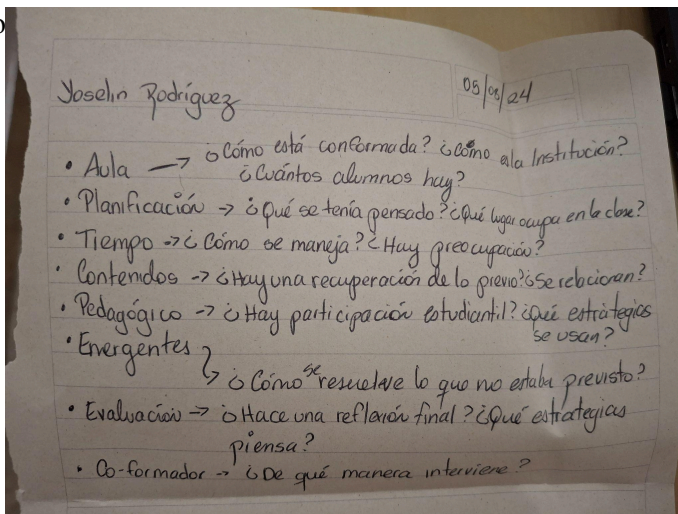 Yoselin Rodríguez
05/08/24
• Aula → ¿Cómo está conformada? ¿cómo es la Institución?
¿Cuántos alumnos hay?
• Planificación → ¿Qué se tenía pensado? ¿Qué lugar ocupa en la clase?
• Tiempo → ¿Cómo se maneja? ¿Hay preocupación?
• Contenidos → ¿Hay una recuperación de lo previo? ¿Se relacionan?
• Pedagógico → ¿Hay participación estudiantil? ¿Qué estrategias
se usan?
• Emergentes
↳ ¿Cómo se resuelve lo que no estaba previsto?
• Evaluación → ¿Hace una reflexión final? ¿Qué estrategias
piensa?
• Co-formador → ¿De qué manera interviene?